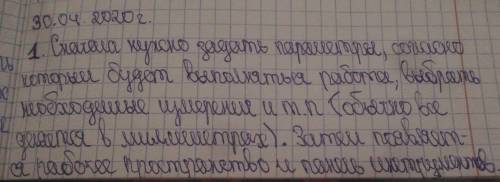 30.04.2020г.
1. Сначала нужно задать параметры, согласно
которым будет выполняться работа, выбрать
необходимые измерения и т.п (обычно все
делается в миллиметрах). Затем появляет-
ся рабочее пространство и панель инструментов